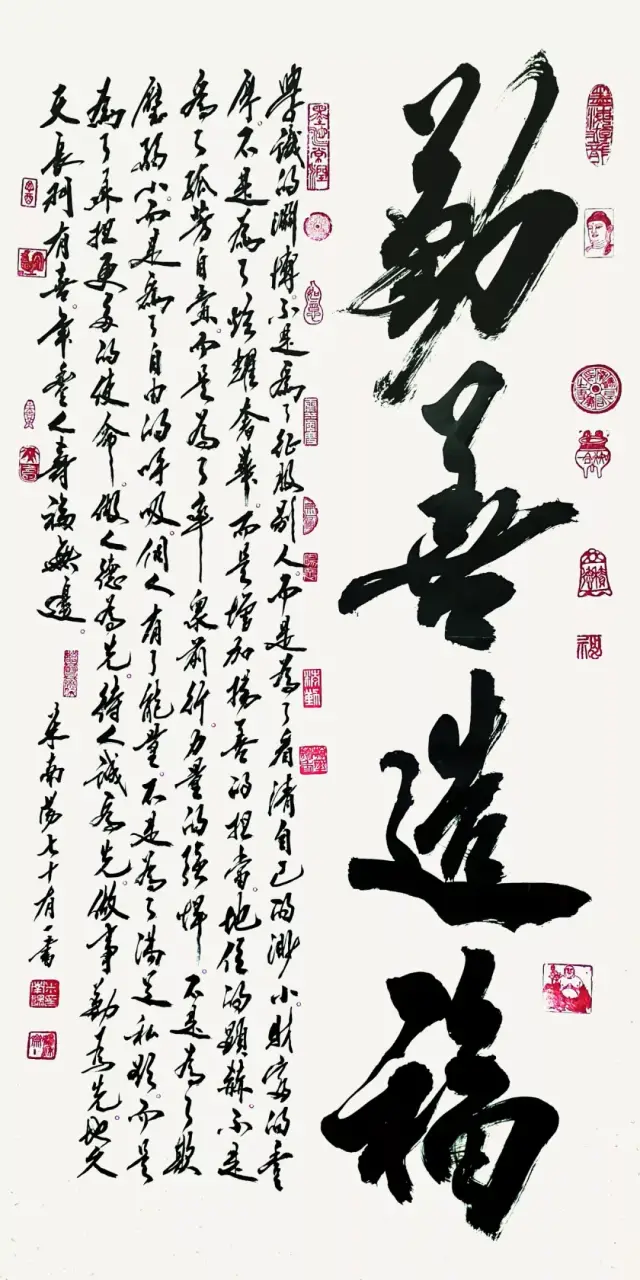 勤善造福
學識的淵博。不是為了征服別人。而是為了看清自己的渺小。財富的豐
厚。不是為了炫耀奢華。而是增加揚善的担當。地位的顯赫。不是
為了孤芳自賞。而是為了率衆前行。力量的強悍。不是為了欺
壓弱小。而是為了自由的呼吸。個人有了能量。不是為了滿足私欲。而是
為了承担更多的使命。做人德為先。待人誠為先。做事勤為先。地久
天長 有喜。年豐人壽福無邊。
南陽七十有一書